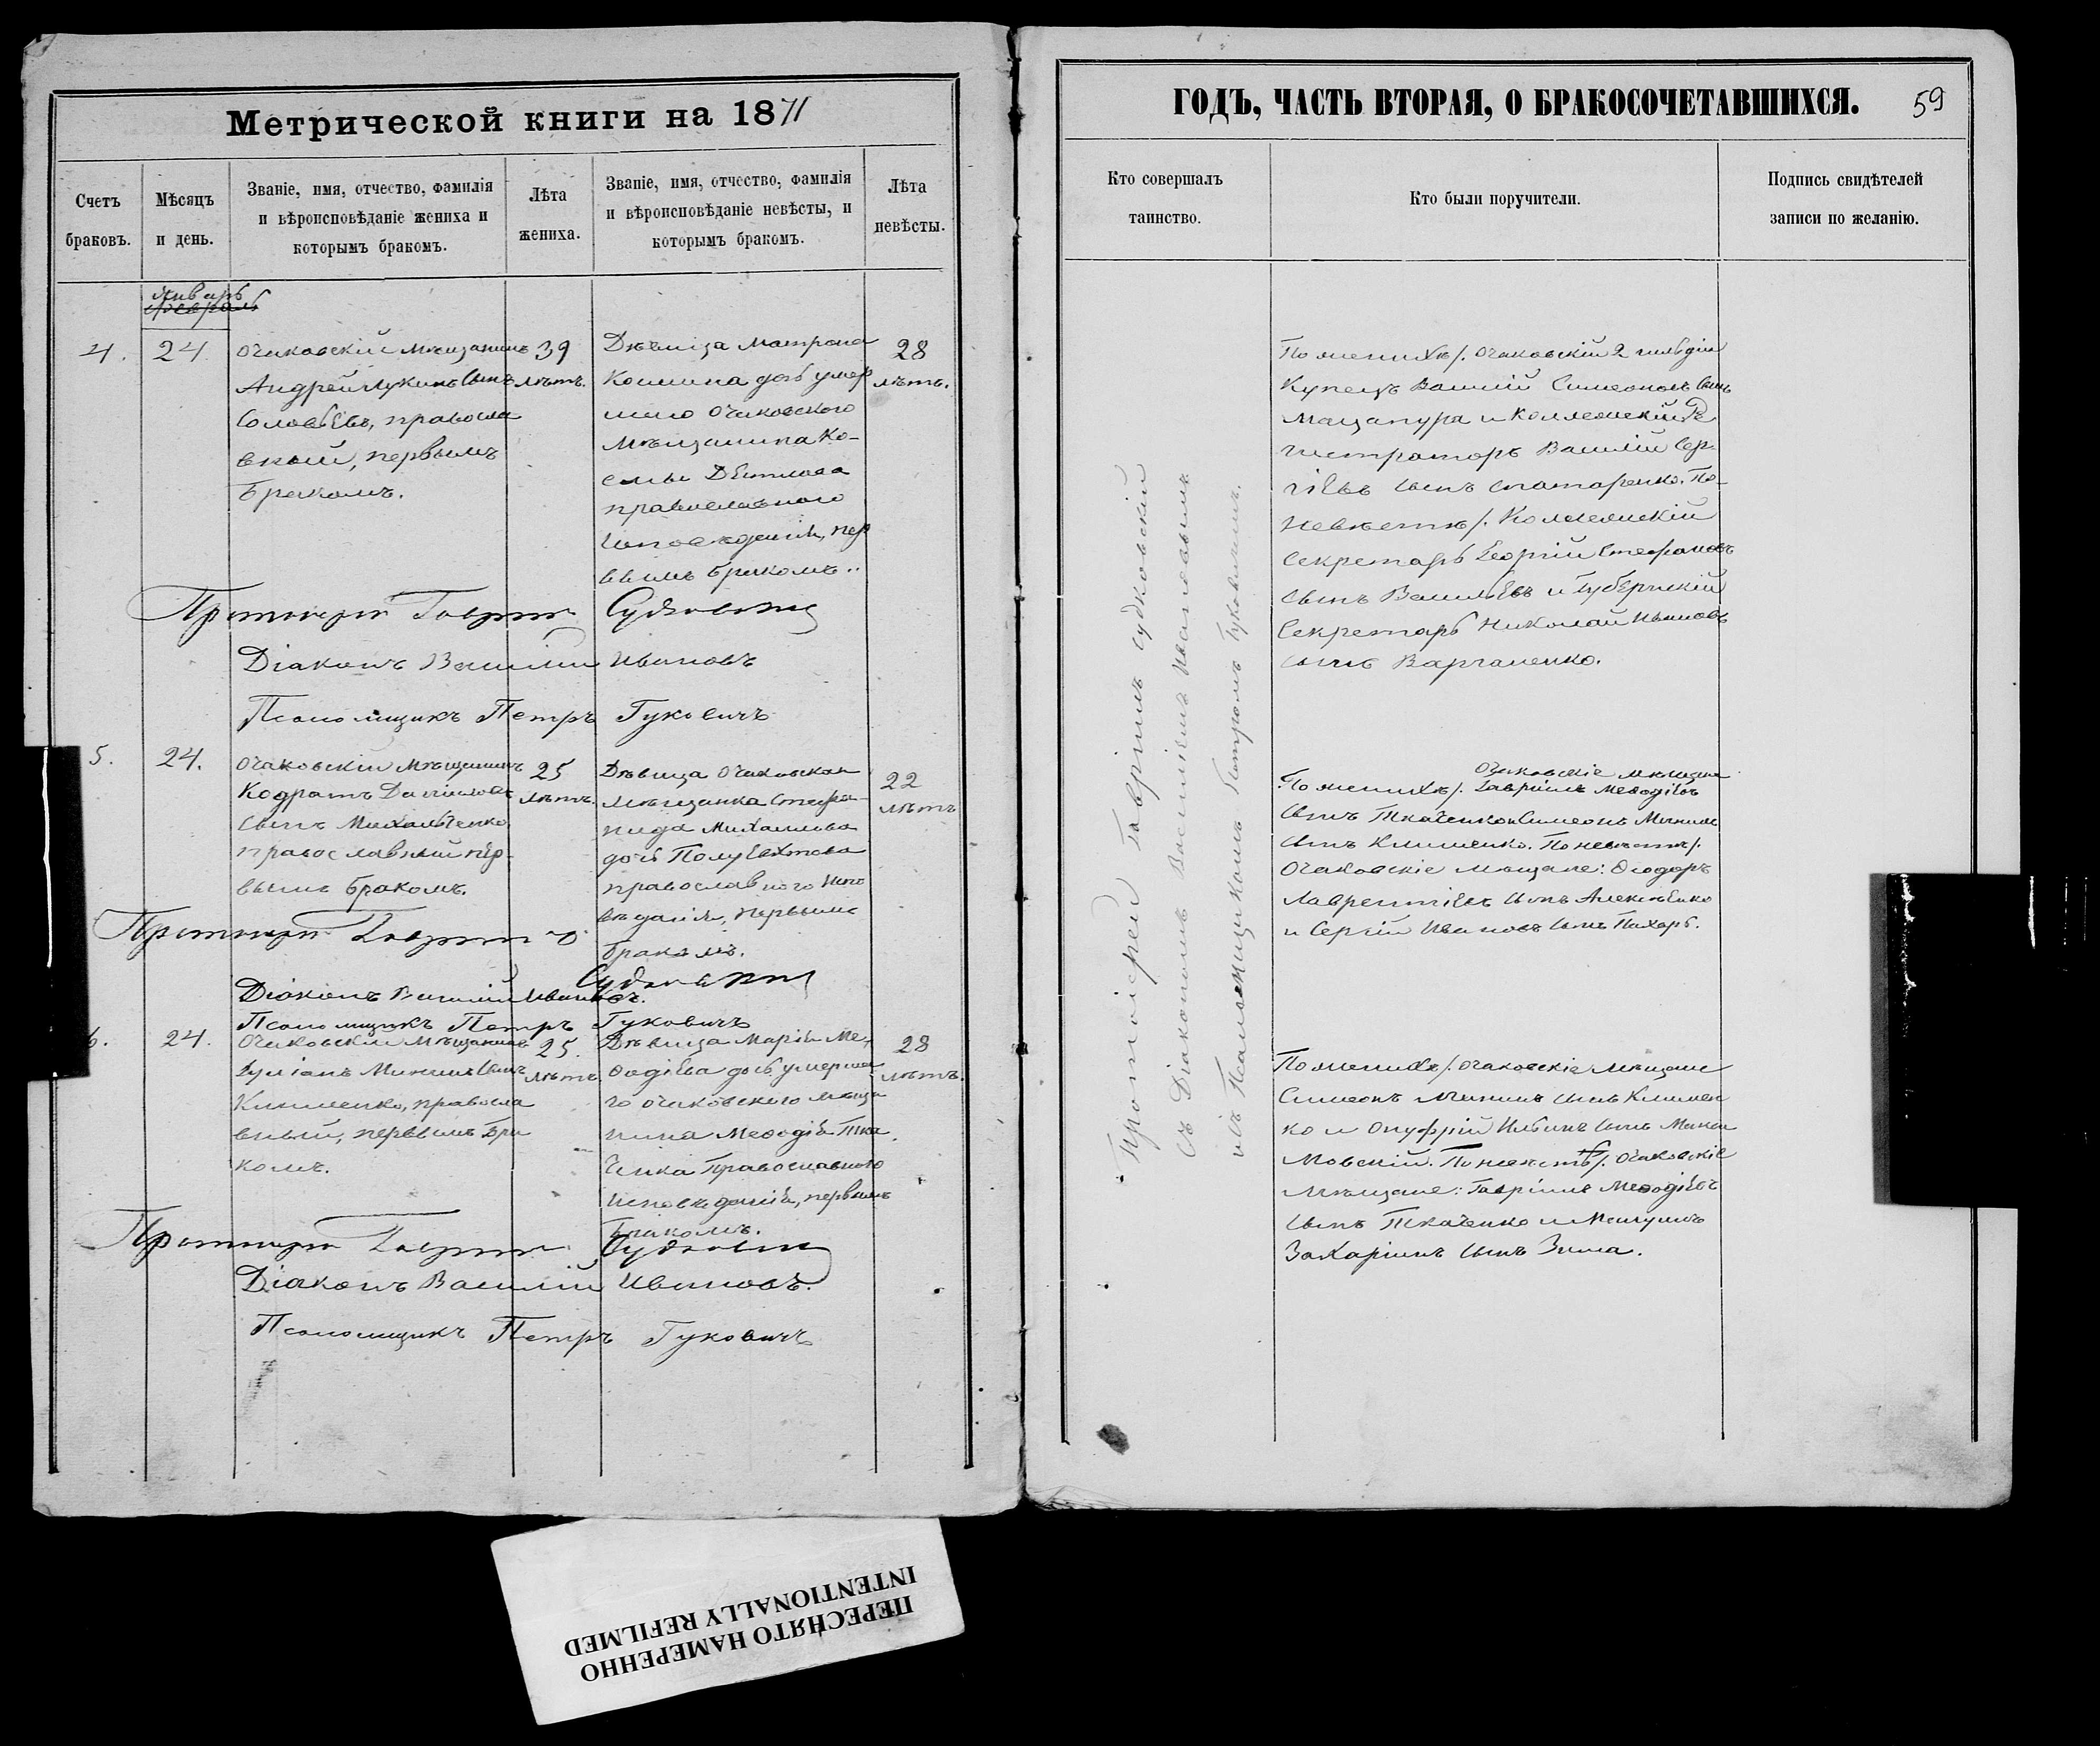 Метрической книги на 1871
Счетъ браковъ.
Мѣсяцъ и день.
Званіе, имя, отчество, фамилія
и вѣроисповѣданіе жениха и
которымъ бракомъ.
Лѣта жениха.
Званіе, имя, отчество, фамилія
и вѣроисповѣданіе невѣсты, и
которымъ бракомъ.
Лѣта невѣсты.
Январь
Февраль
4.
24
Очаковскій мѣщанинъ
Андрей Лукинъ сынъ
Соловьевъ, правосла
вный, первымъ
бракомъ.
39
лѣтъ.
Дѣвица Матрона
Косьмина дочь умер
шаго Очаковского
мѣщанина Ко-
сьмы Дѣтлова
православнаго
исповѣданія, пер
вымъ бракомъ..
28
лѣтъ.
Протоіерей Гавріилъ Судковскій
Діаконъ Василій Ивановъ
Псаломщикъ Петръ Гуковичъ
5.
24.
Очаковскій мѣщанинъ
Кодратъ Даніиловъ
сынъ Михальченко
православный пер-
вымъ бракомъ.
25
лѣтъ.
Дѣвица Очаковская
мѣщанка Стефа-
нида Михаилова
дочь Полуевктова
православного испо
вѣданія, первымъ
бракомъ.
22
лѣтъ
Протоіерей Гавріилъ
Судковскій
Діаконъ Василій Ивановъ.
Псаломщикъ Петръ Гуковичъ
6.
24.
Очаковскій мѣщанинъ
Іуліанъ Мининъ сынъ
Клименко, правосла
вный, первымъ бра
комъ.
25.
лѣтъ.
Дѣвица Марія Ме-
ѳодіева дочь умерша
го Очаковского мѣща
нина Меѳодія Тка
ченка православного
исповѣданія, первымъ
бракомъ.
28
лѣтъ.
Протоіерей Гавріилъ Судковскій
Діаконъ Василій Ивановъ.
Псаломщикъ Петръ Гуковичъ
ГОДЪ, ЧАСТЬ ВТОРАЯ, О БРАКОСОЧЕТАВШИХСЯ.
59
Кто совершалъ таинство.
Кто были поручители.
Подпись свидѣтелей
записи по желанію.
Протоіерей Гавріилъ Судковскій
съ Діакономъ Василіемъ Ивановымъ
и съ Псаломщикомъ Петромъ Гуковичемъ.
По женихѣ/. Очаковскій 2 гильдіи
Купецъ Василій Симеоновъ сынъ
Мацапура и Коллежскій Ре
гистраторъ Василій Сер-
гіевъ сынъ Спатаренко. По-
невѣстѣ/. Коллежскій
Секретарь Георгій Стефановъ
сынъ Васильевъ и Губернскій
Секретарь Николай Ивановъ
сынъ Варганенко.
Очаковскіе мѣщане
По женихѣ/. Гавріилъ Меѳодіевъ
сынъ Ткаченко и Симеонъ Мининъ
сынъ Клименко. По невѣстѣ/.
Очаковскіе мѣщане: Ѳеодоръ
Лаврентіевъ сынъ Алексѣенко
и Сергій Ивановъ сынъ Пахарь.
По женихѣ/. Очаковскіе мѣщане
Симеонъ Мининъ сынъ Климен
ко и Онуфрій Ильинъ сынъ
По невѣстѣ/. Очаковскіе
мѣщане: Гавріилъ Меѳодіевъ
сынъ Ткаченко и
Захаріинъ сынъ Зима.
ПЕРЕСНЯТО НАМЕРЕННО
INTENTIONALLY REFILMED